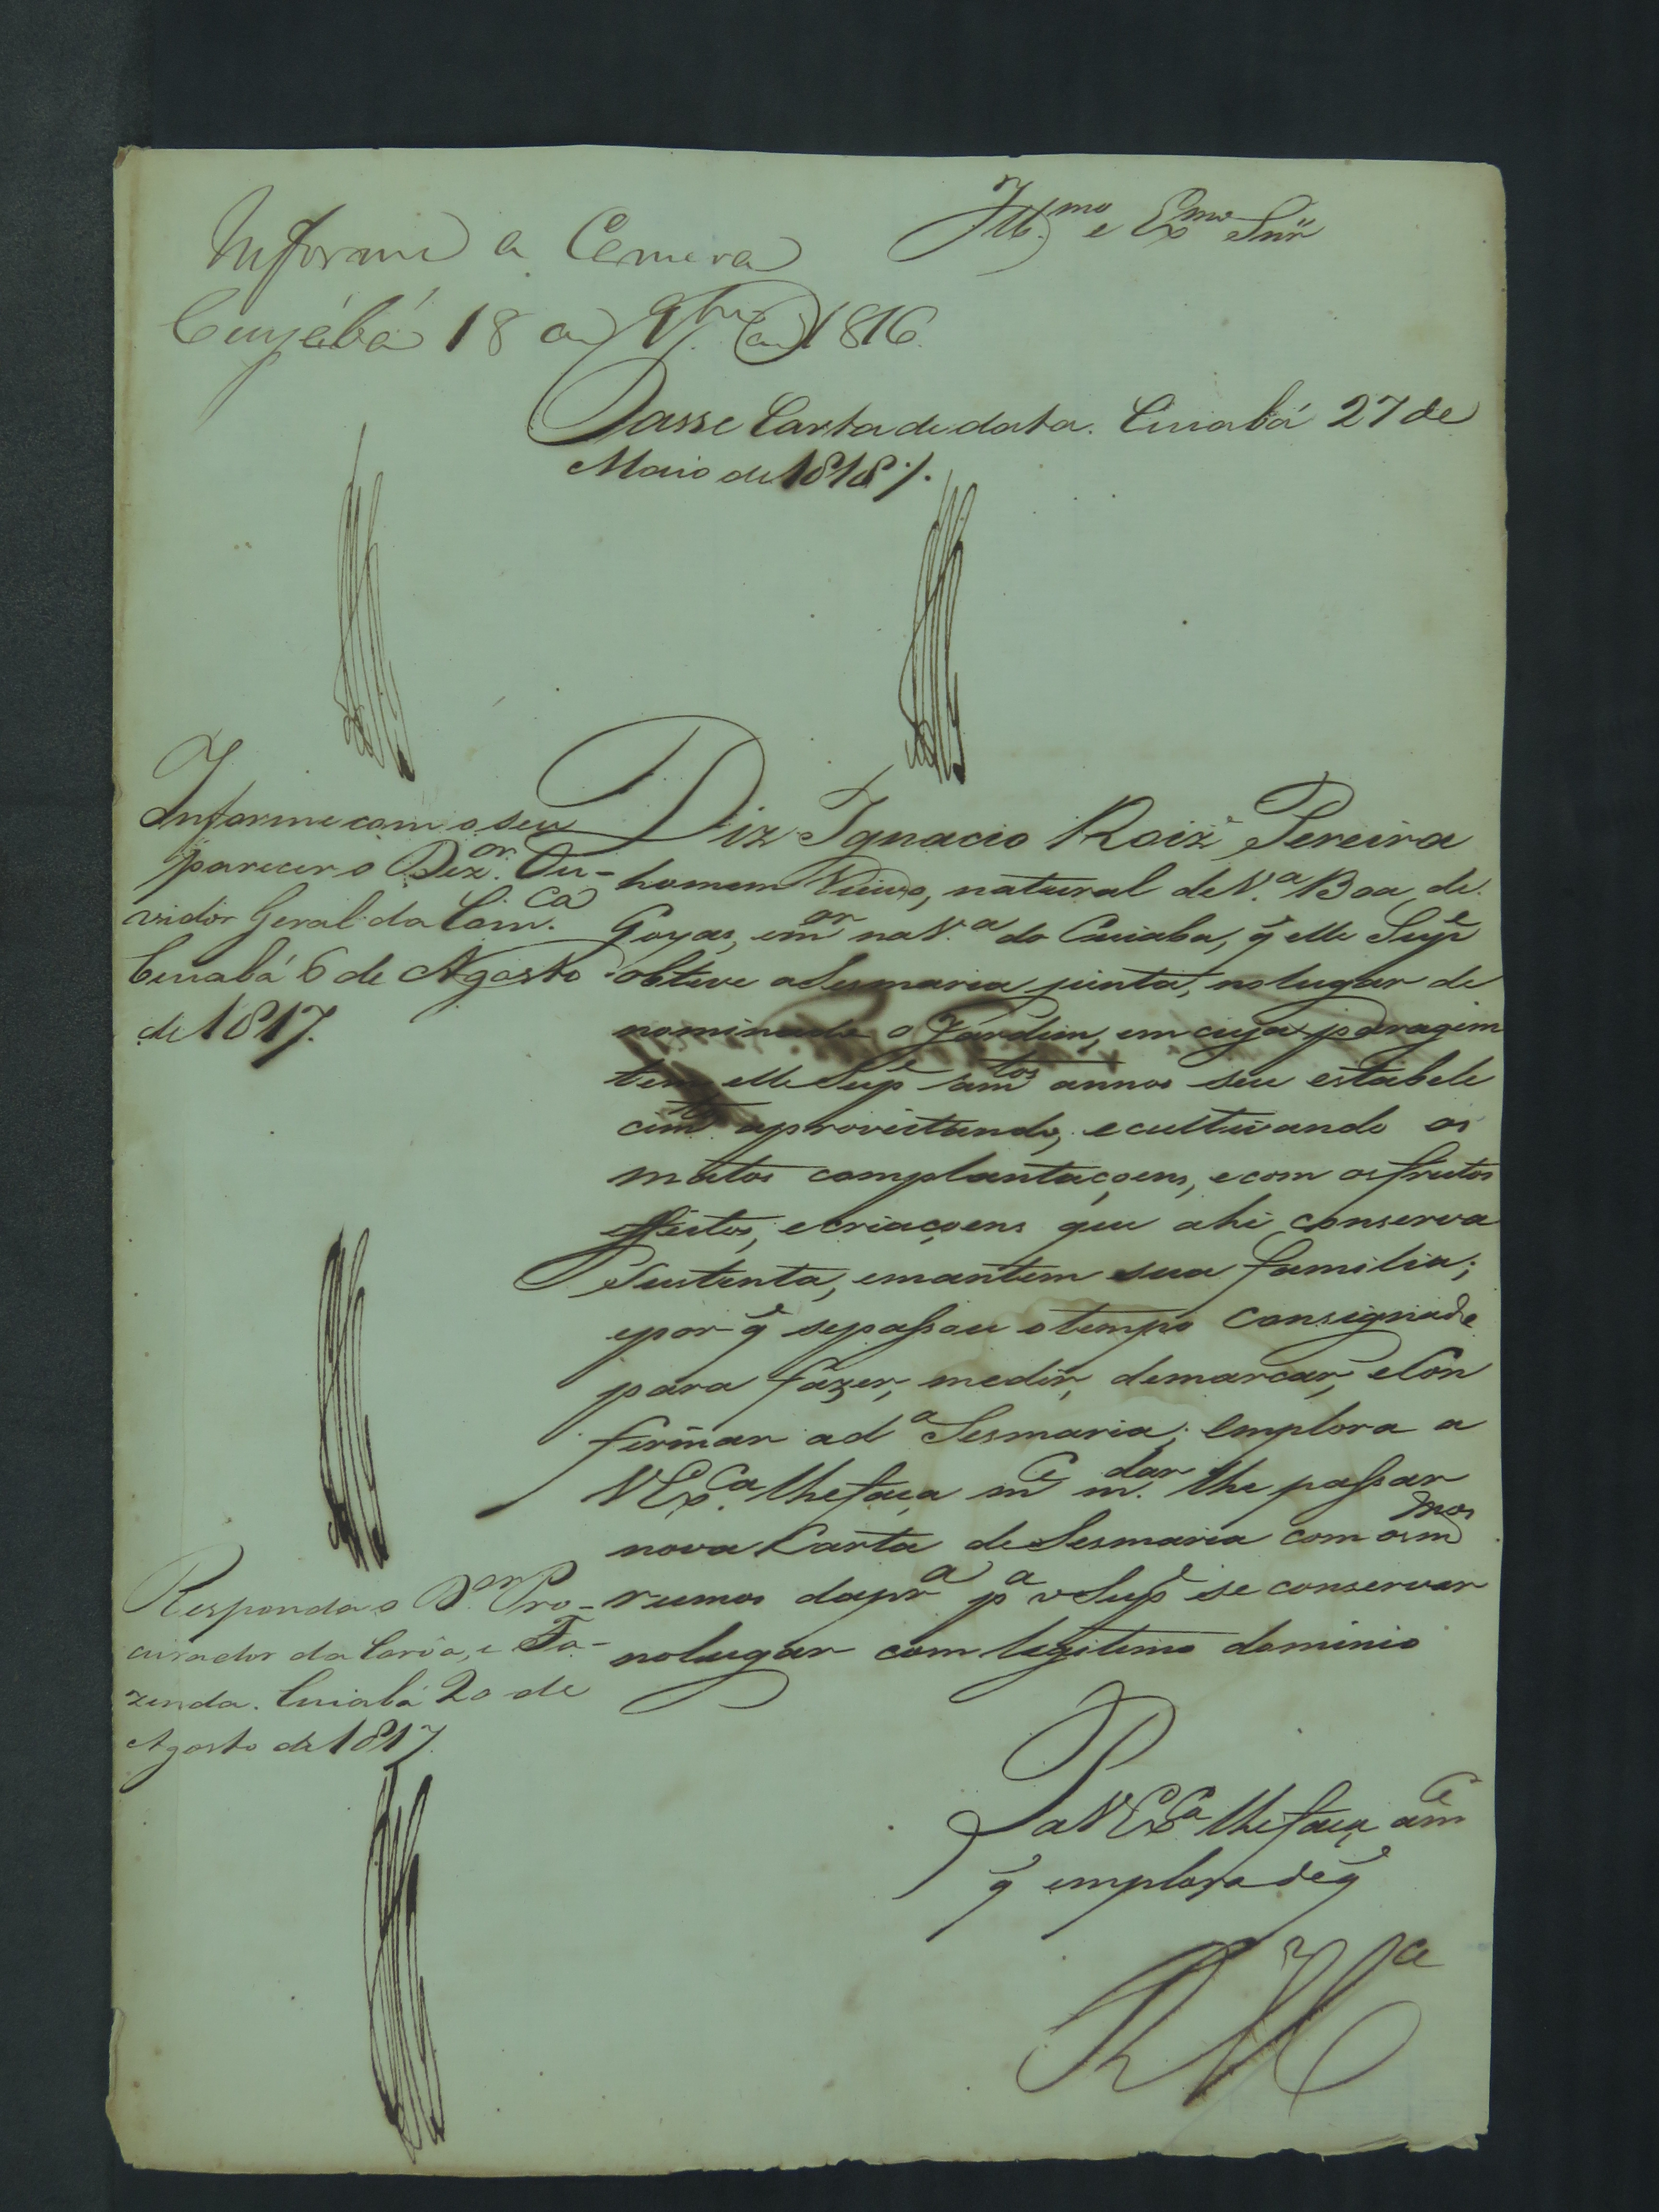 Informe a Camera
Cuyábá 18 de 9br.º de 1816.
Ill.mo e Ex.mo Snr̃
Passe Carta de data. Cuiabá 27 de
Maio de 1818 /.
Informe com o seu
parecer o Dez.or Ou-
vidor Geral da Com.ca
Cuiabá 6 de Agosto
de 1817.
Diz Ignacio Roiz Pereira
homem Viuvo, natural de V.a Boa de
Goyas, em or na V.a do Cuiaba, q̃ elle Supe
obteve a Sesmaria junta, no lugar de
nominado o Jardim, em cuja paragem
tem elle Supe am.tos annos seu estabele
cim.to aproveitando, e cultivando os
matos complantaçoens, e com os frutos
effeitos, e criaçoens que ahi conserva
Sustenta, emantem sua familia;
epor q̃ sepassou o tempo consignado
para fazer, medir, demarcar, e Con
firmar a d.a Sesmaria; Emplora a
V Ex.ca lhe faça m.ce m.dar lhe passar
nova Carta de Sesmaria com os m.mos
rumos dapr.a p.a o Supe se conservar
no lugar com legitimo dominio
Responda o D.or Pro-
curador da Coroa, e Fa-
zenda. Cuiabá 20 de
Agosto de 1817.
P a V Ex.ca lhe faça am.ce
q̃ emplora de q̃
R M.ce